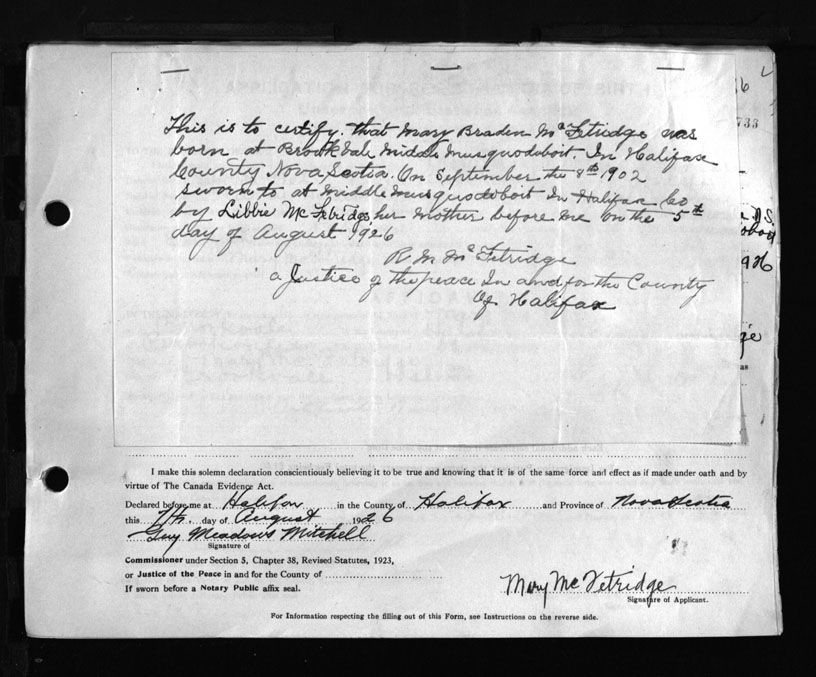 This is to certify. that Mary Braden Mc Fetridge was
born at Brookvale Middle Musquodoboit. In Halifax
County Nova Scotia. On September the 8th 1902
Sworn to at Middle Musquodoboit In Halifax Co
by Libbie McFetridge, her Mother before me on the 5th
day of August 1926
R M Mc Fetridge
a Justice of the peace In and for the County
Of Halifax
733
926
I make this solemn declaration conscientiously believing it to be true and knowing that it is of the same force and effect as if made under oath and by
virtue of The Canada Evidence Act.
Declared before me at Halifax in the County of Halifax and Province of Nova Scotia
this 7th day of August 1926
Guy Meadows Mitchell
Signature of
Commissioner under Section 5, Chapter 38, Revised Statutes, 1923,
or Justice of the Peace in and for the County of
If sworn before a Notary Public affix seal.
Mary McFetridge
Signature of Applicant.
For Information respecting the filling out of this Form, see Instructions on the reverse side.